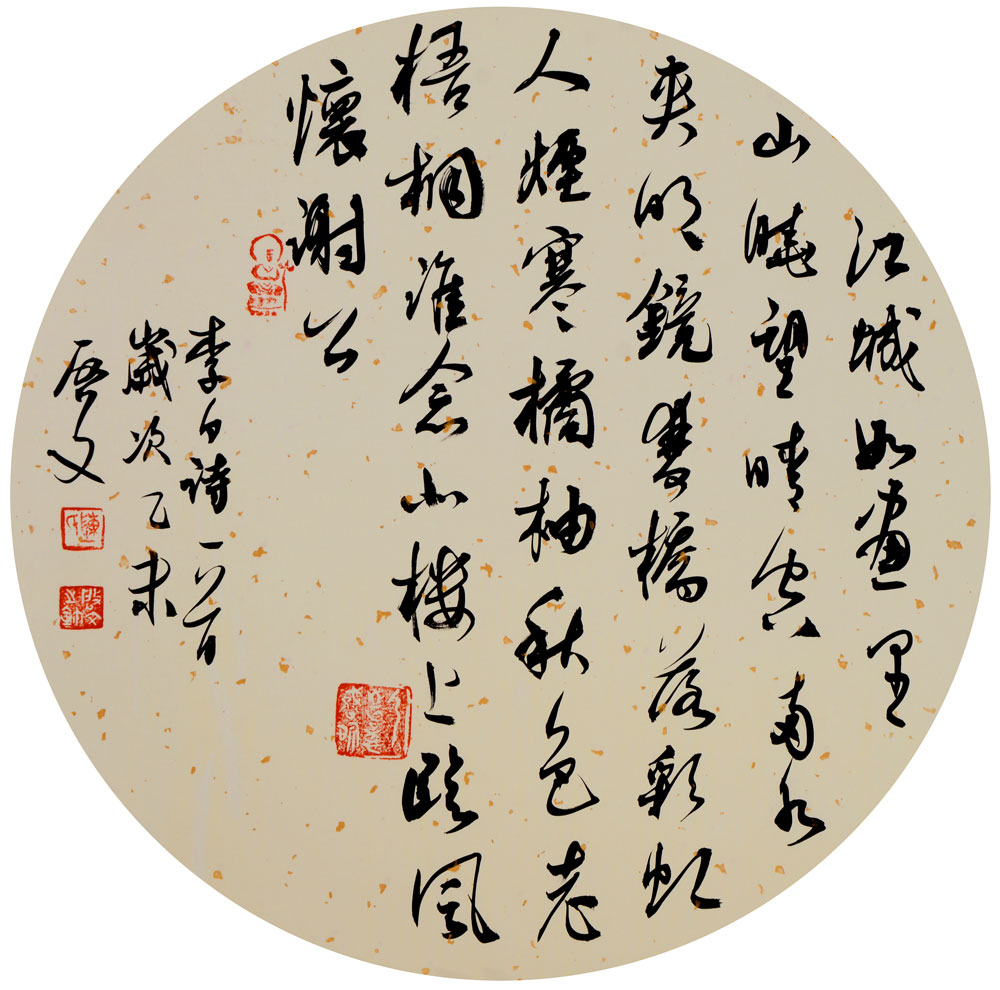 江城如畫里
山曉望晴空兩水
夾明鏡雙橋落彩虹
人煙寒橘柚秋色老
梧桐誰念北樓上臨風
懷謝公
李白詩一首
歲次乙未
啟文